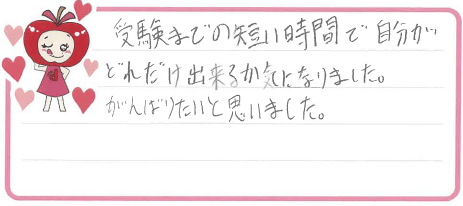 受験までの短い時間で自分が
どれだけ出来るか気になりました。
がんばりたいと思いました。